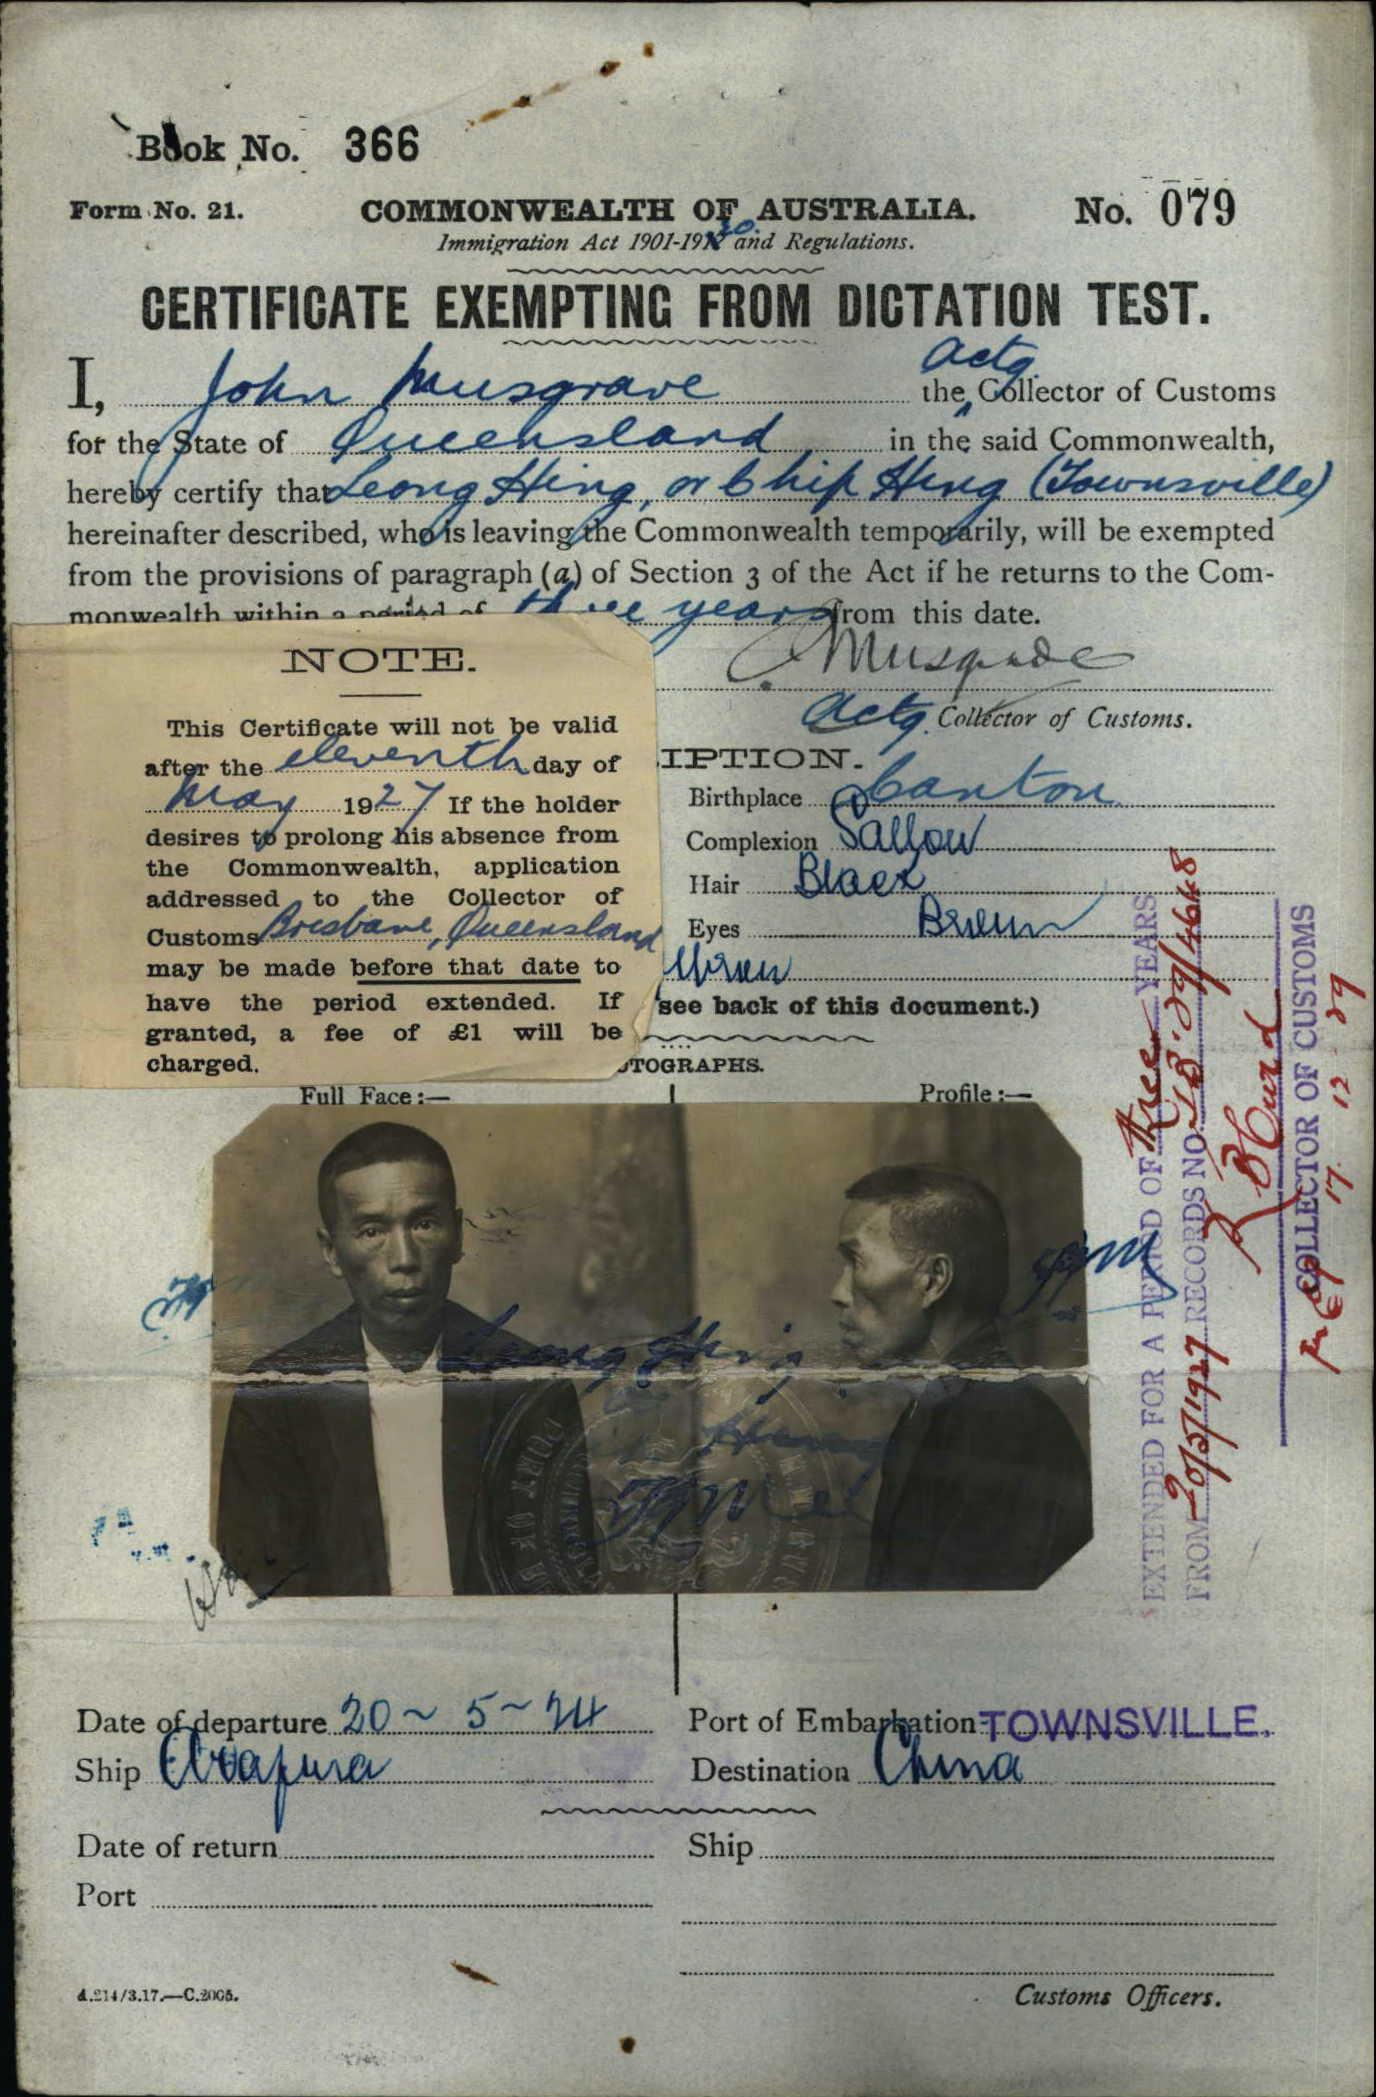 Book No. 366
Form No. 21.
COMMONWEALTH OF AUSTRALIA.
No. 079
Immigration Act 1901-1920 and Regulations.
CERTIFICATE EXEMPTING FROM DICTATION TEST.
I, John Musgrave the Actg. Collector of Customs
for the State of Queensland in the said Commonwealth,
hereby certify that Leong Hing, or Chip Hing (Townsville)
hereinafter described, who is leaving the Commonwealth temporarily, will be exempted
from the provisions of paragraph (a) of Section 3 of the Act if he returns to the Com-
monwealth within a period of three years from this date.
Musgrave
Actg. Collector of Customs.
NOTE.
This Certificate will not be valid
after the eleventh day of
May 1927 If the holder
desires to prolong his absence from
the Commonwealth, application
addressed to the Collector of
Customs Brisbane, Queensland
may be made before that date to
have the period extended. If
granted, a fee of £1 will be
charged.
IPTION.
Birthplace Canton
Complexion Sallow
Hair Black
Eyes Brown
see back of this document.)
TOGRAPHS.
Full Face :—
Profile :—
Leong Hing
Hing
EXTENDED FOR A PERIOD OF three YEARS
FROM 20/5/1927 RECORDS NO.
COLLECTOR OF CUSTOMS
17 12 29
Date of departure 20 ~ 5 ~ 24
Port of Embarkation TOWNSVILLE.
Ship Arafura
Destination China
Date of return
Ship
Port
A.214/3.17.—C.2005.
Customs Officers.